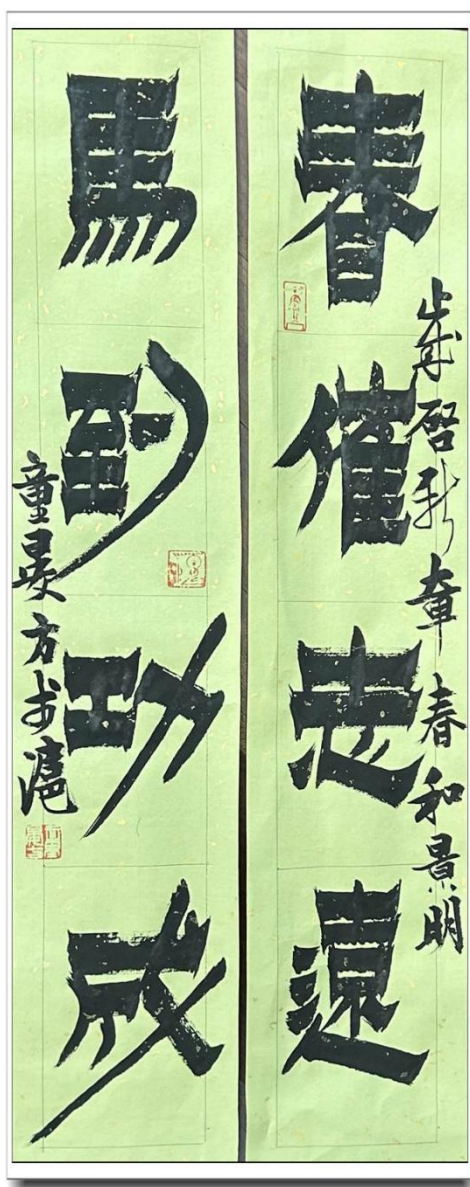 春催志遠
歲啓新章春和景明
馬到功成
童晏方书滬